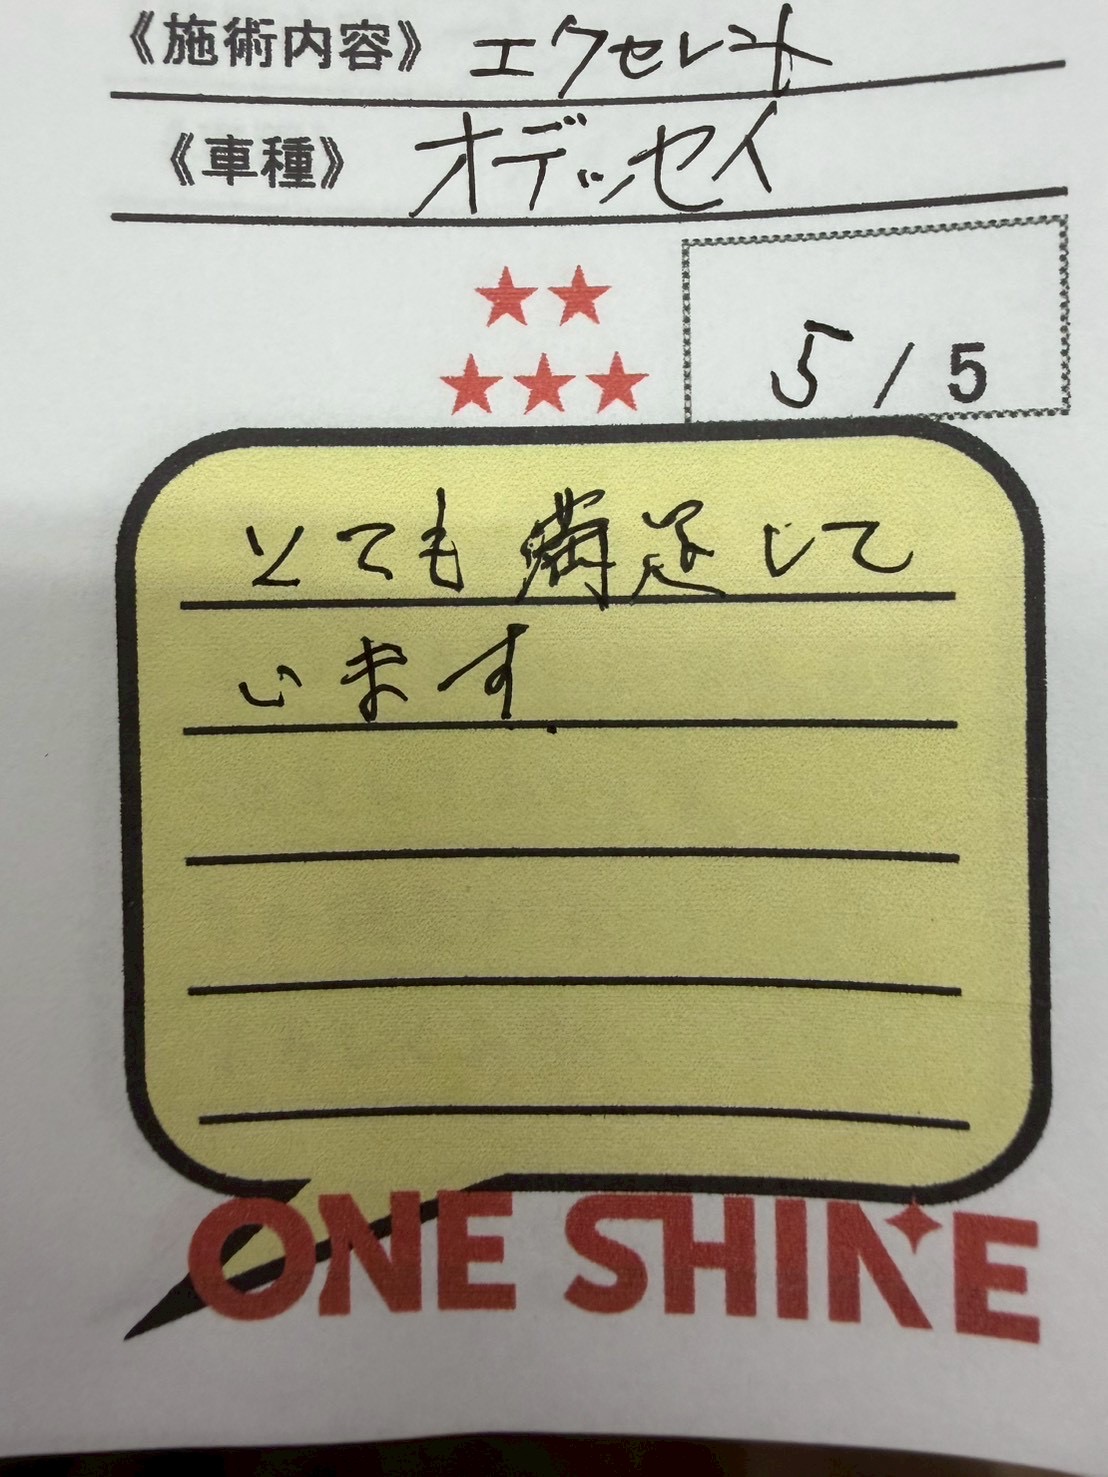 《施術内容》 エクセレント
《車種》 オデッセイ
★★
★★★
5 / 5
とても満足して
います.
ONE SHINE